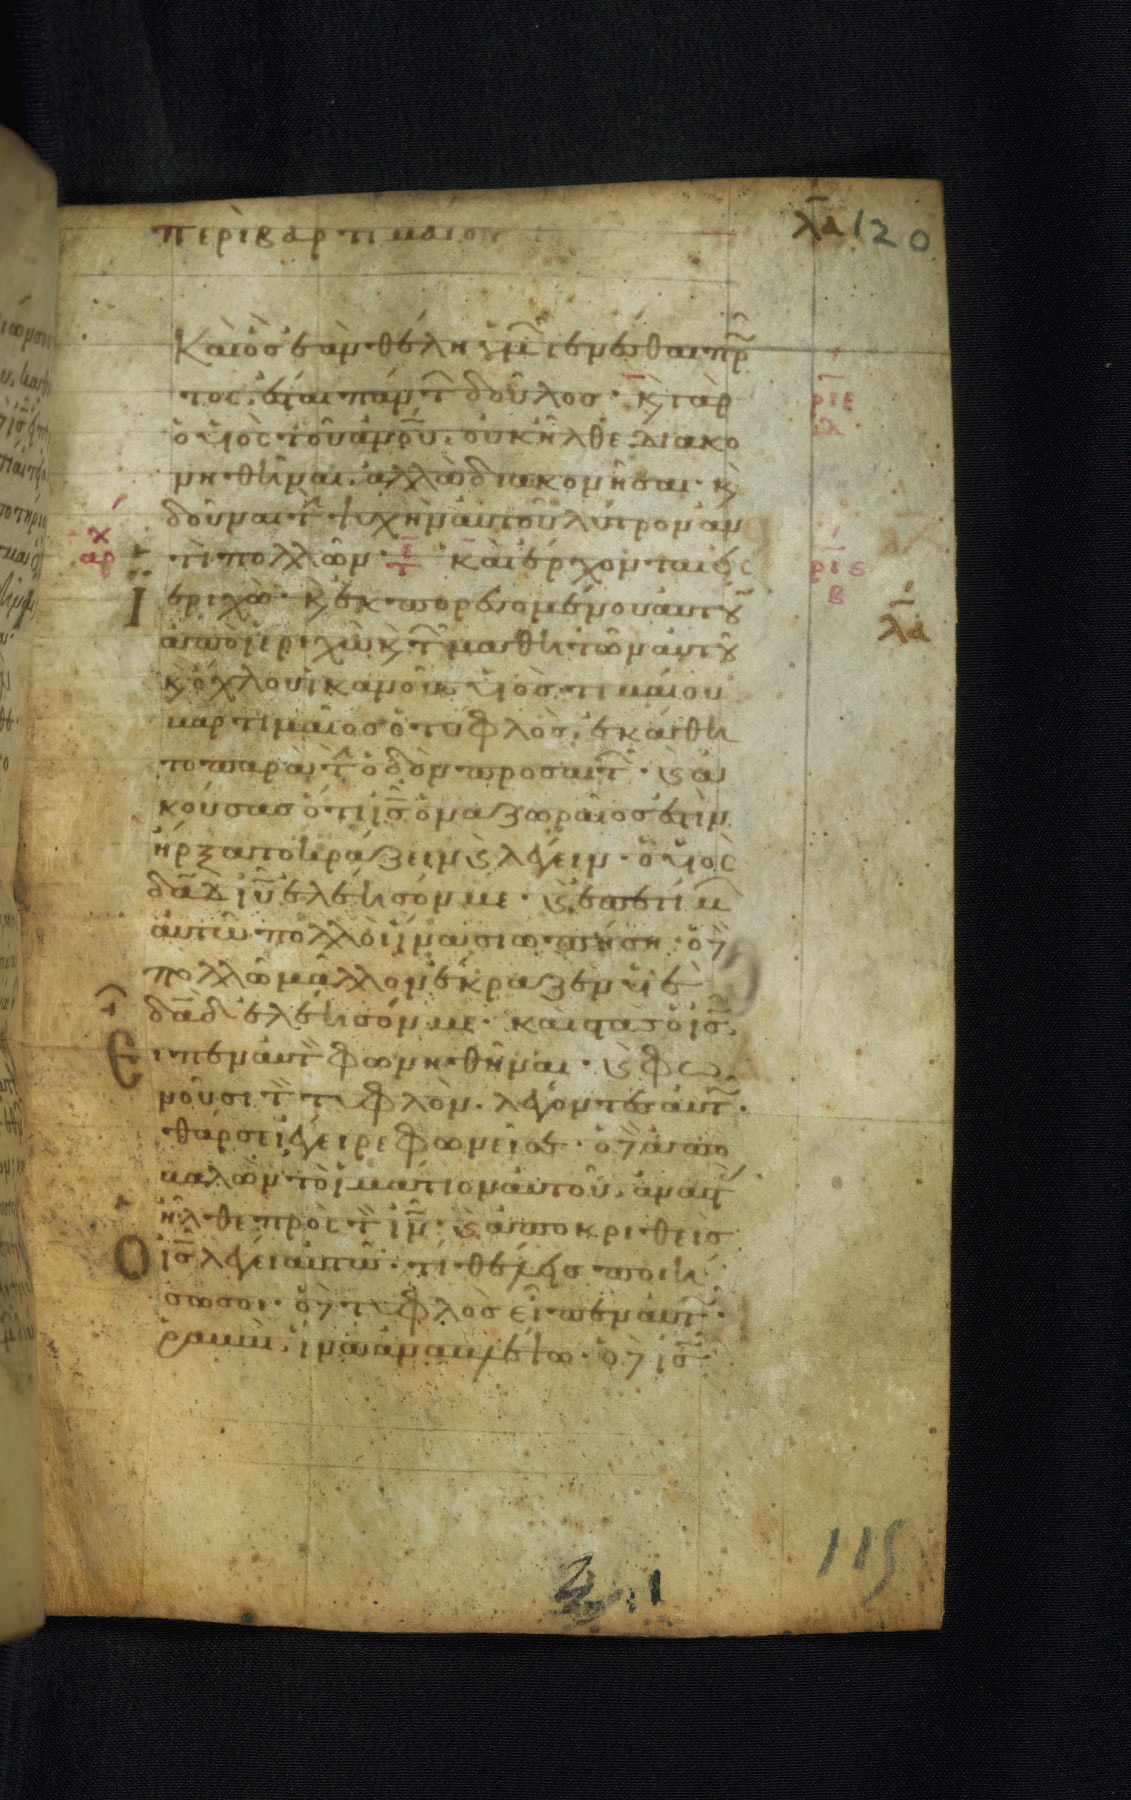 περὶ βαρτιμαίου
λ̅α̅ 120
Καὶ ὃς ἐὰν θέλῃ ὑμ̑ γενέσθαι πρ̑
τος, ἔσται πάντ̑ δοῦλος· κ̀ γὰρ
ρ̅ι̅ε̅
ὁ υἱὸς τοῦ ἀνο̅υ̅, οὐκ ἦλθε διακο
νηθῆναι, ἀλλὰ διακονῆσαι· κ̀
δοῦναι τ̀ ψυχὴν αὐτοῦ λύτρον ἀν
τὶ πολλῶν· Καὶ ἔρχονται εἰς
αρ
ρ̅ι̅ς̅
β
Ἰεριχώ· κ̀ ἐκπορευομένου αὐτȣ
λ̅α̅
ἀπὸ ἰεριχὼ κ̀ τ̑ μαθητῶν αὐτȣ
κ̀ ὄχλου ἱκανοῦ· υἱὸς τιμαίου
βαρτιμαῖος ὁ τυφλὸς, ἐκάθη
το παρὰ τ̀ ὁδὸν προσαιτ̑· κ̀ ἀ
κούσας ὅτι ι̅ς̅ ὁ ναζωραῖος ἐστὶν
ἤρξατο κράζειν κ̀ λέγειν· ὁ υἱὸς
δα̅δ̅ ι̅υ̅ ἐλέησόν με· κ̀ ἐπετίμ
αὐτῶ πολλοὶ ἵνα σιωπήση· ὁ δὲ
πολλῶ μᾶλλον ἔκραζεν υἱὲ
δα̅δ̅ ἐλέησόν με· καὶ στὰς ὁ ι̅ς̅,
Εἶπεν αὐτὸ φωνηθῆναι· κ̀ φω
νοῦσι τ̀ τυφλὸν. λέγοντες αὐτ̑·
θάρσει ἔγειρε φωνεῖ σε· ὁ δὲ ἀπο
βαλὼν τὸ ἱμάτιον αὐτοῦ, ἀναστ̀
ἦλθε πρὸς τ̀ ι̅ν̅· κ̀ ἀποκριθεὶς
Ὁ ι̅ς̅ λέγει αὐτῶ· τί θέλεις ποιή
σω σοι· ὁ δὲ τυφλὸς εἶπεν αὐτ̑·
ραββουνὶ, ἵνα ἀναβλέψω· ὁ δὲ ι̅ς̅
119